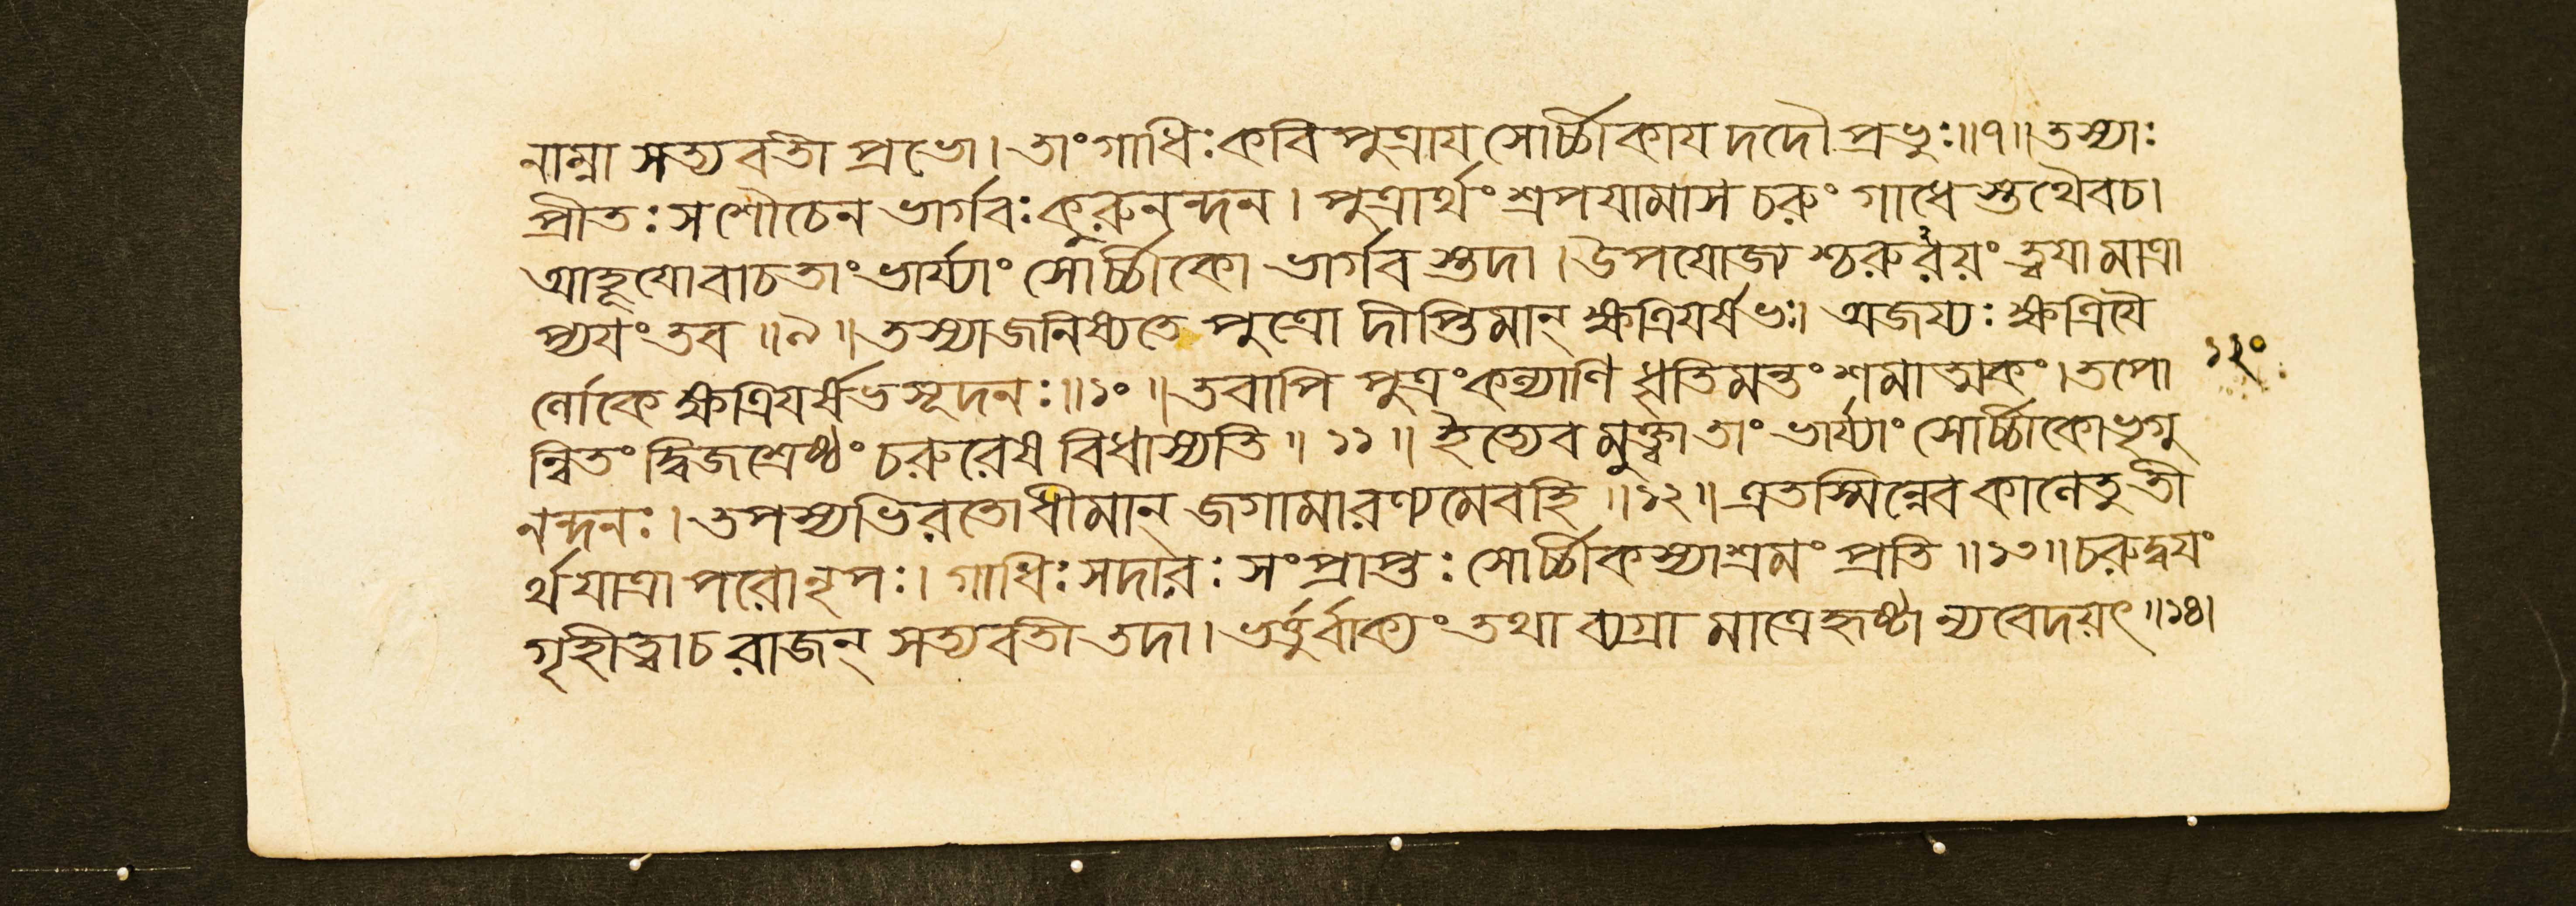 নাম্না সত্যবতী প্রভো। তাং গাধিঃ কবিপুত্রায সোর্চ্চীকায দদৌ প্রভুঃ॥৭॥ তস্যাঃ
প্রীতঃ সশৌচেন ভার্গবঃ কুরুনন্দন। পুত্রার্থং শ্রপযামাস চরুং গাধে স্তথৈবচ।
আহূযোবাচ তাং ভার্য্যাং সোর্চ্চীকো ভার্গব স্তদা। উপযোজ্য শ্চরুরয়ং ত্বযা মাত্রা
প্যযং তব॥৯॥ তস্যা জনিষ্যতে পুত্রো দীপ্তিমান্ ক্ষত্রিযর্ষভঃ। অজয্যঃ ক্ষত্রিযৈ
র্লোকে ক্ষত্রিযর্ষভসূদনঃ॥১০॥ তবাপি পুত্রং কল্যাণি ধৃতিমন্তং শমাত্মকং। তপো
ন্বিতং দ্বিজশ্রেষ্ঠং চরুরেষ বিধাস্যতি॥১১॥ ইত্যেব মুক্ত্বা তাং ভার্য্যাং সোর্চ্চীকো ভৃগু
নন্দনঃ। তপস্যভিরতো ধীমান্ জগামারণ্যমেবহি॥১২॥ এতস্মিন্নেব কালেতু তী
র্থযাত্রাপরো নৃপঃ। গাধিঃ সদারঃ সংপ্রাপ্তঃ সোর্চ্চীকস্যাশ্রমং প্রতি॥১৩॥ চরুদ্বযং
গৃহীত্বাচ রাজন্ সত্যবতী তদা। ভর্ত্তুর্বাক্যং তথা ব্যগ্রা মাত্রে হৃষ্টা ন্যবেদয়ৎ॥১৪।